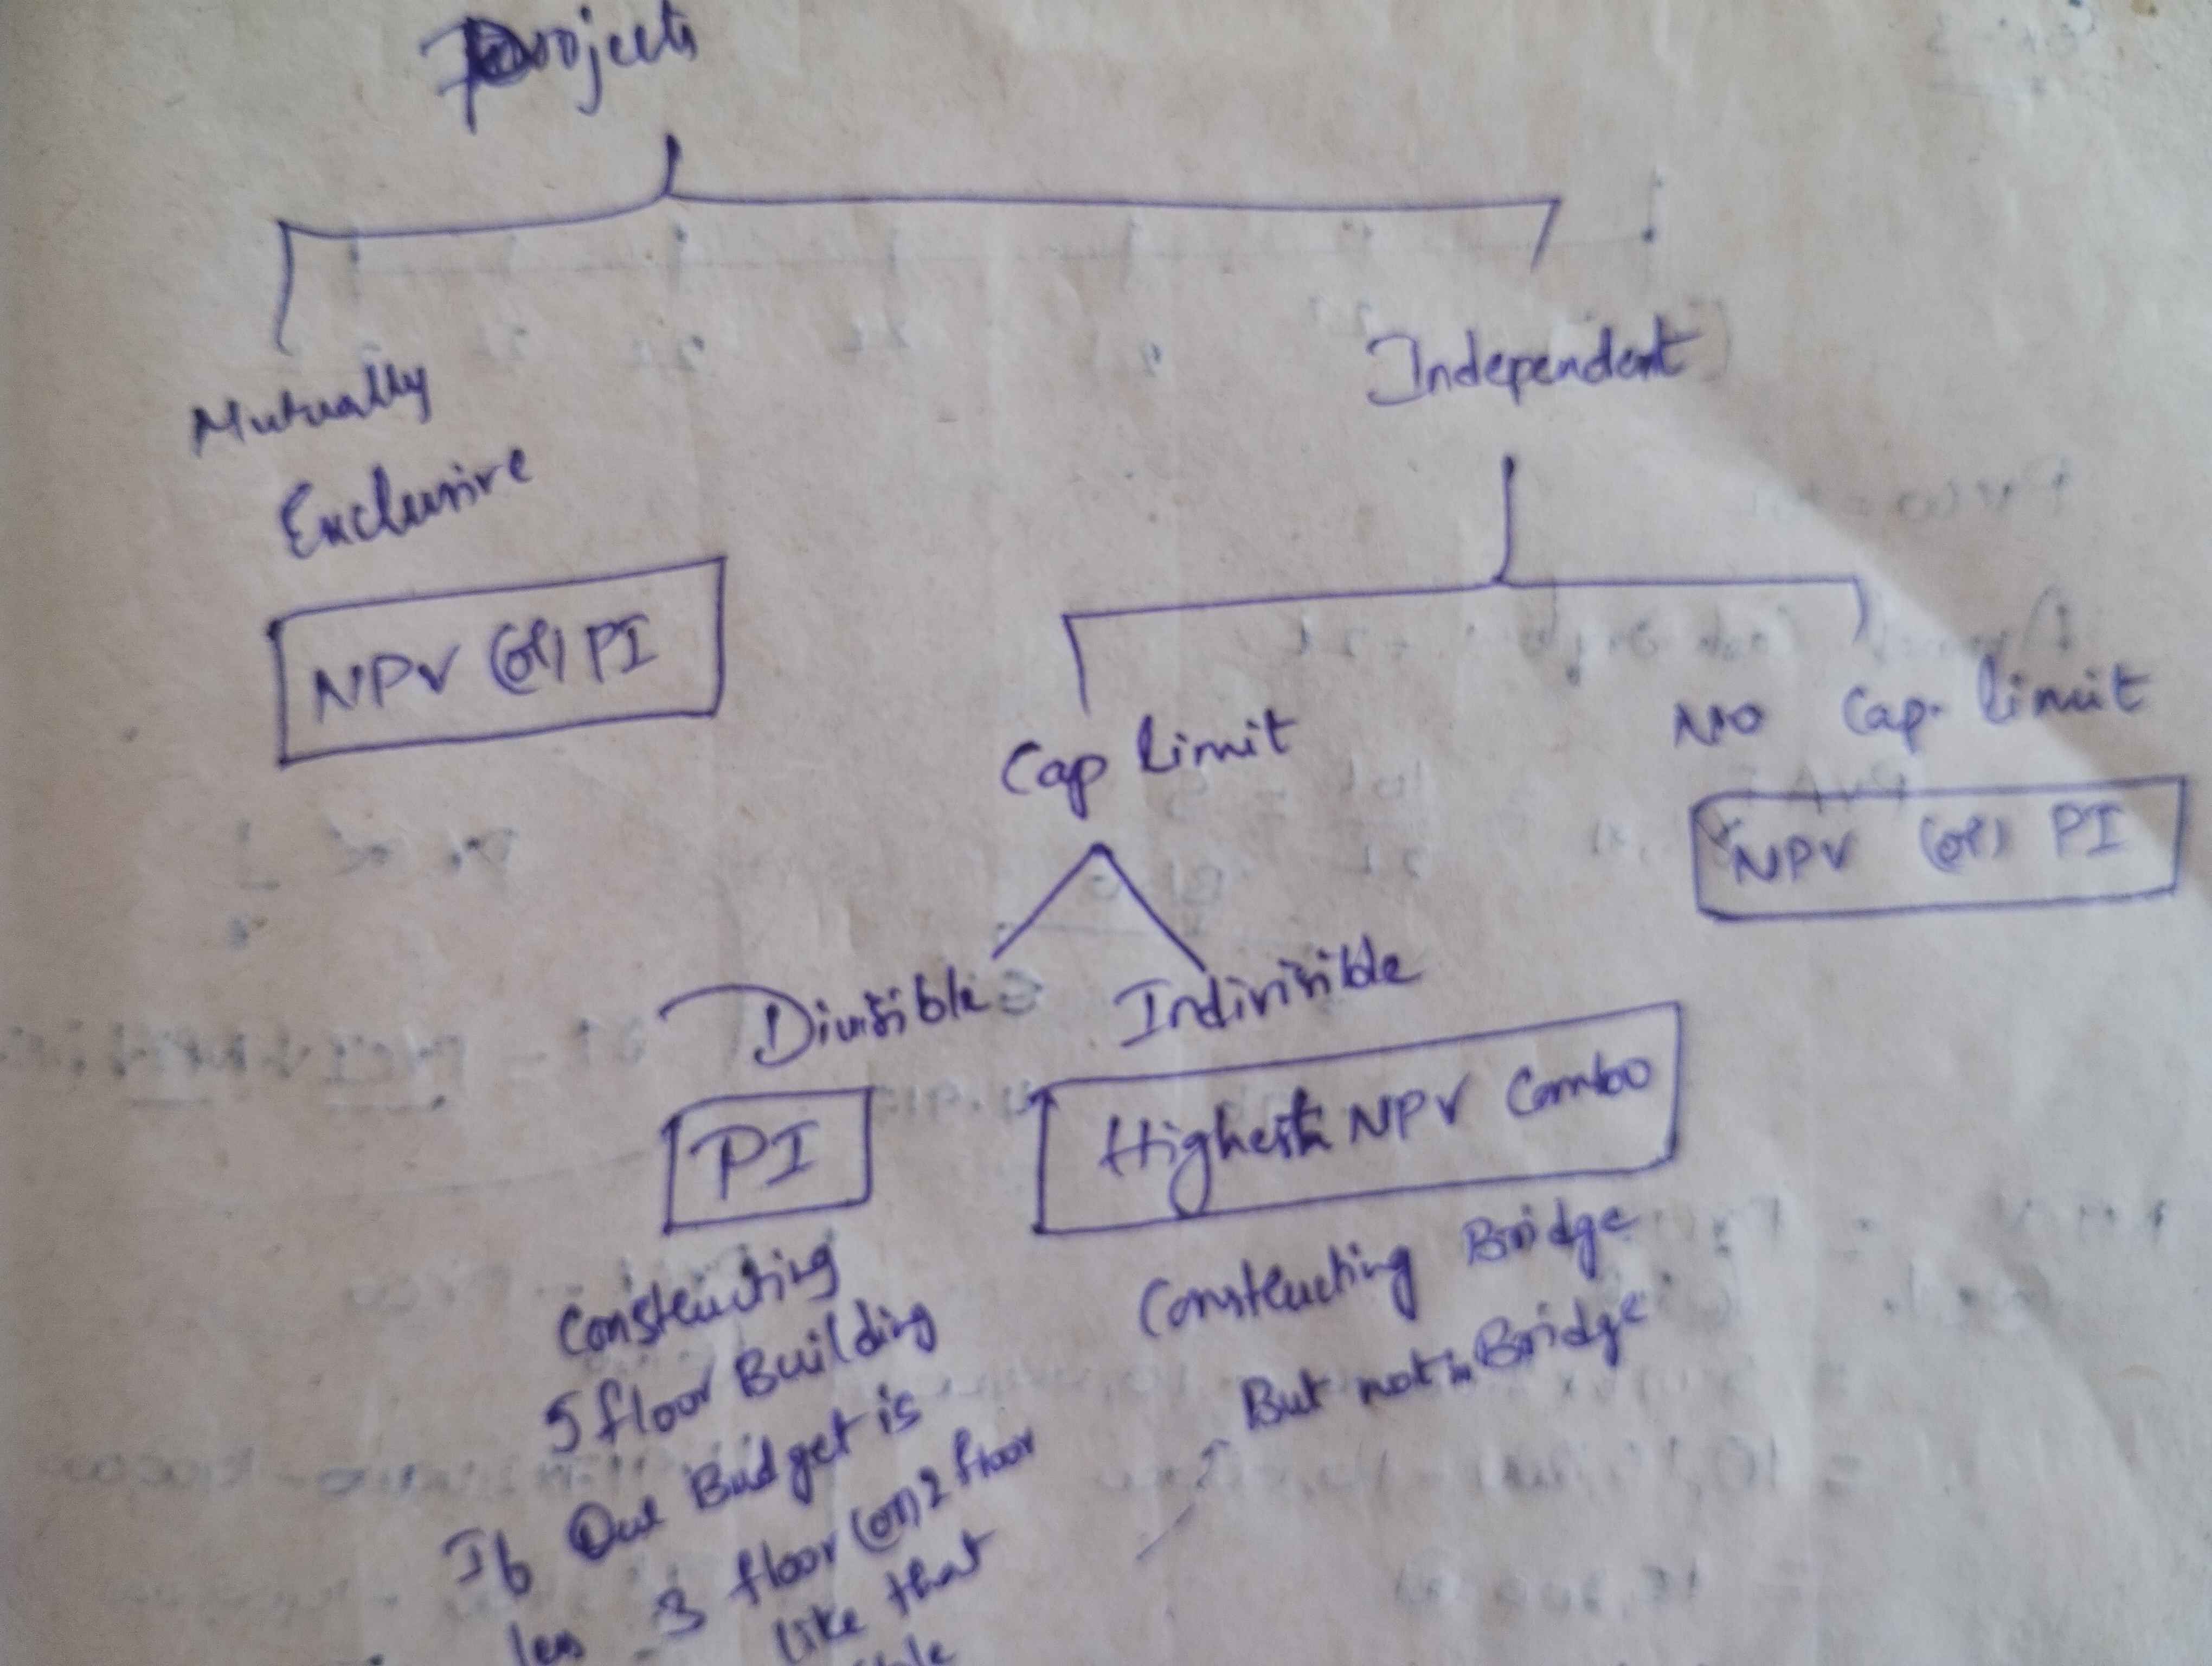 Projects
Mutually
Exclusive
NPV (or) PI
Independent
Cap limit
No Cap. limit
NPV (or) PI
Divisible
Indivisible
PI
Highest NPV Combo
Constructing
5 floor Building
If Our Budget is
less 3 floor (or) 2 floor
like that
Constructing Bridge
But not in Bridge